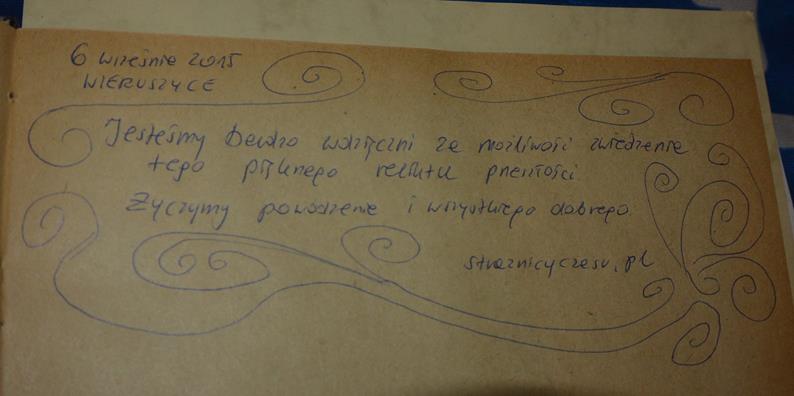 6 września 2015
WIERUSZYCE
Jesteśmy bardzo wdzięczni za możliwość zwiedzenia
tego pięknego reliktu przeszłości.
Życzymy powodzenia i wszystkiego dobrego.
straznicyczasu.pl